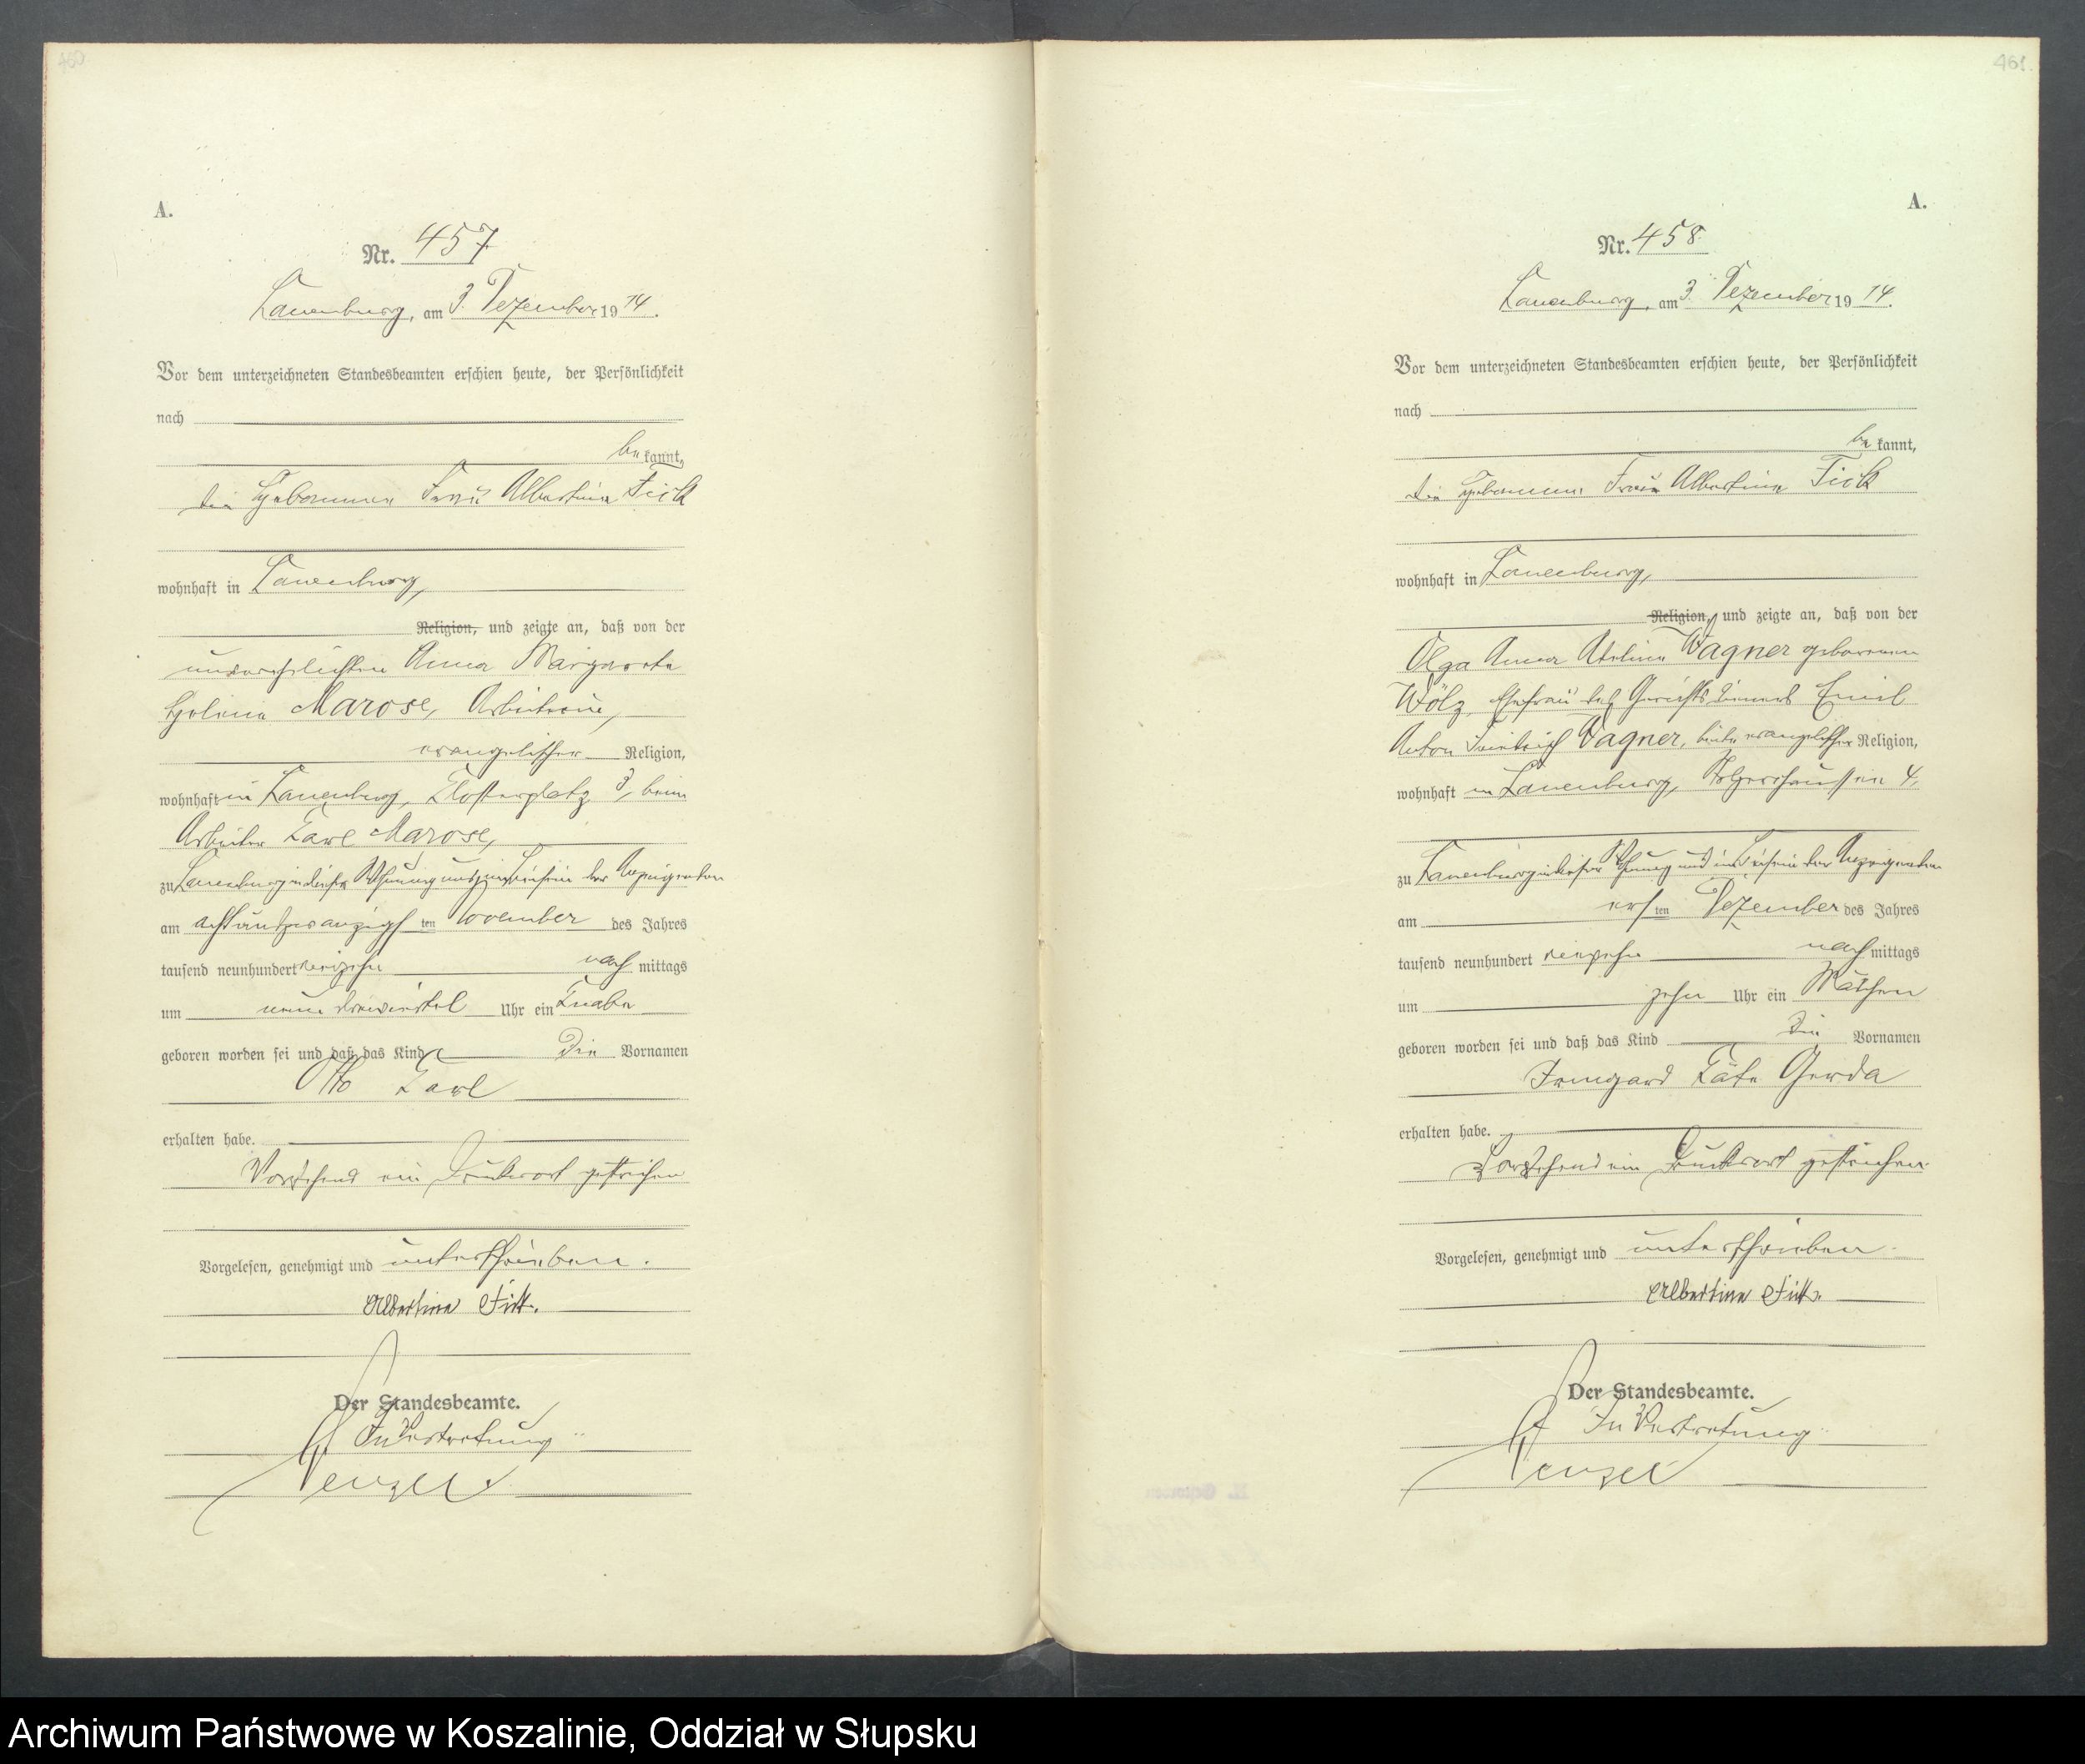 460
A.
Nr. 457
Lauenburg, am 3. Dezember 1914.
Vor dem unterzeichneten Standesbeamten erschien heute, der Persönlichkeit
nach
be kannt,
die Hebamme Frau Albertine Fick
wohnhaft in Lauenburg,
Religion, und zeigte an, daß von der
unverehelichten Anna Margarete
Helene Marose, Arbeiterin,
evangelischer Religion,
wohnhaft in Lauenburg, Klosterplatz 3, beim
Arbeiter Karl Marose,
zu Lauenburg in dieser Wohnung und im Beisein der Anzeigenden
am achtundzwanzigsten November des Jahres
tausend neunhundert vierzehn nach mittags
um neun dreiviertel Uhr ein Knabe
geboren worden sei und daß das Kind die Vornamen
Otto Karl
erhalten habe.
Vorstehend ein Druckwort gestrichen
Vorgelesen, genehmigt und unterschrieben.
Albertine Fick.
Der Standesbeamte.
In Vertretung
Wenzel
461.
A.
Nr. 458
Lauenburg, am 3. Dezember 1914.
Vor dem unterzeichneten Standesbeamten erschien heute, der Persönlichkeit
nach
be kannt,
die Hebamme Frau Albertine Fick
wohnhaft in Lauenburg,
Religion, und zeigte an, daß von der
Olga Anna Wagner geborenen
Wölz, Ehefrau des Gerichtsdieners Emil
Anton Friedrich Wagner, beide evangelischer Religion,
wohnhaft in Lauenburg, 4,
zu Lauenburg in dieser Wohnung und im Beisein der Anzeigenden
am ersten Dezember des Jahres
tausend neunhundert vierzehn nach mittags
um zehn Uhr ein Mädchen
geboren worden sei und daß das Kind die Vornamen
Irmgard Käte Gerda
erhalten habe.
Vorstehend ein Druckwort gestrichen.
Vorgelesen, genehmigt und unterschrieben.
Albertine Fick.
Der Standesbeamte.
In Vertretung
Wenzel
Archiwum Państwowe w Koszalinie, Oddział w Słupsku